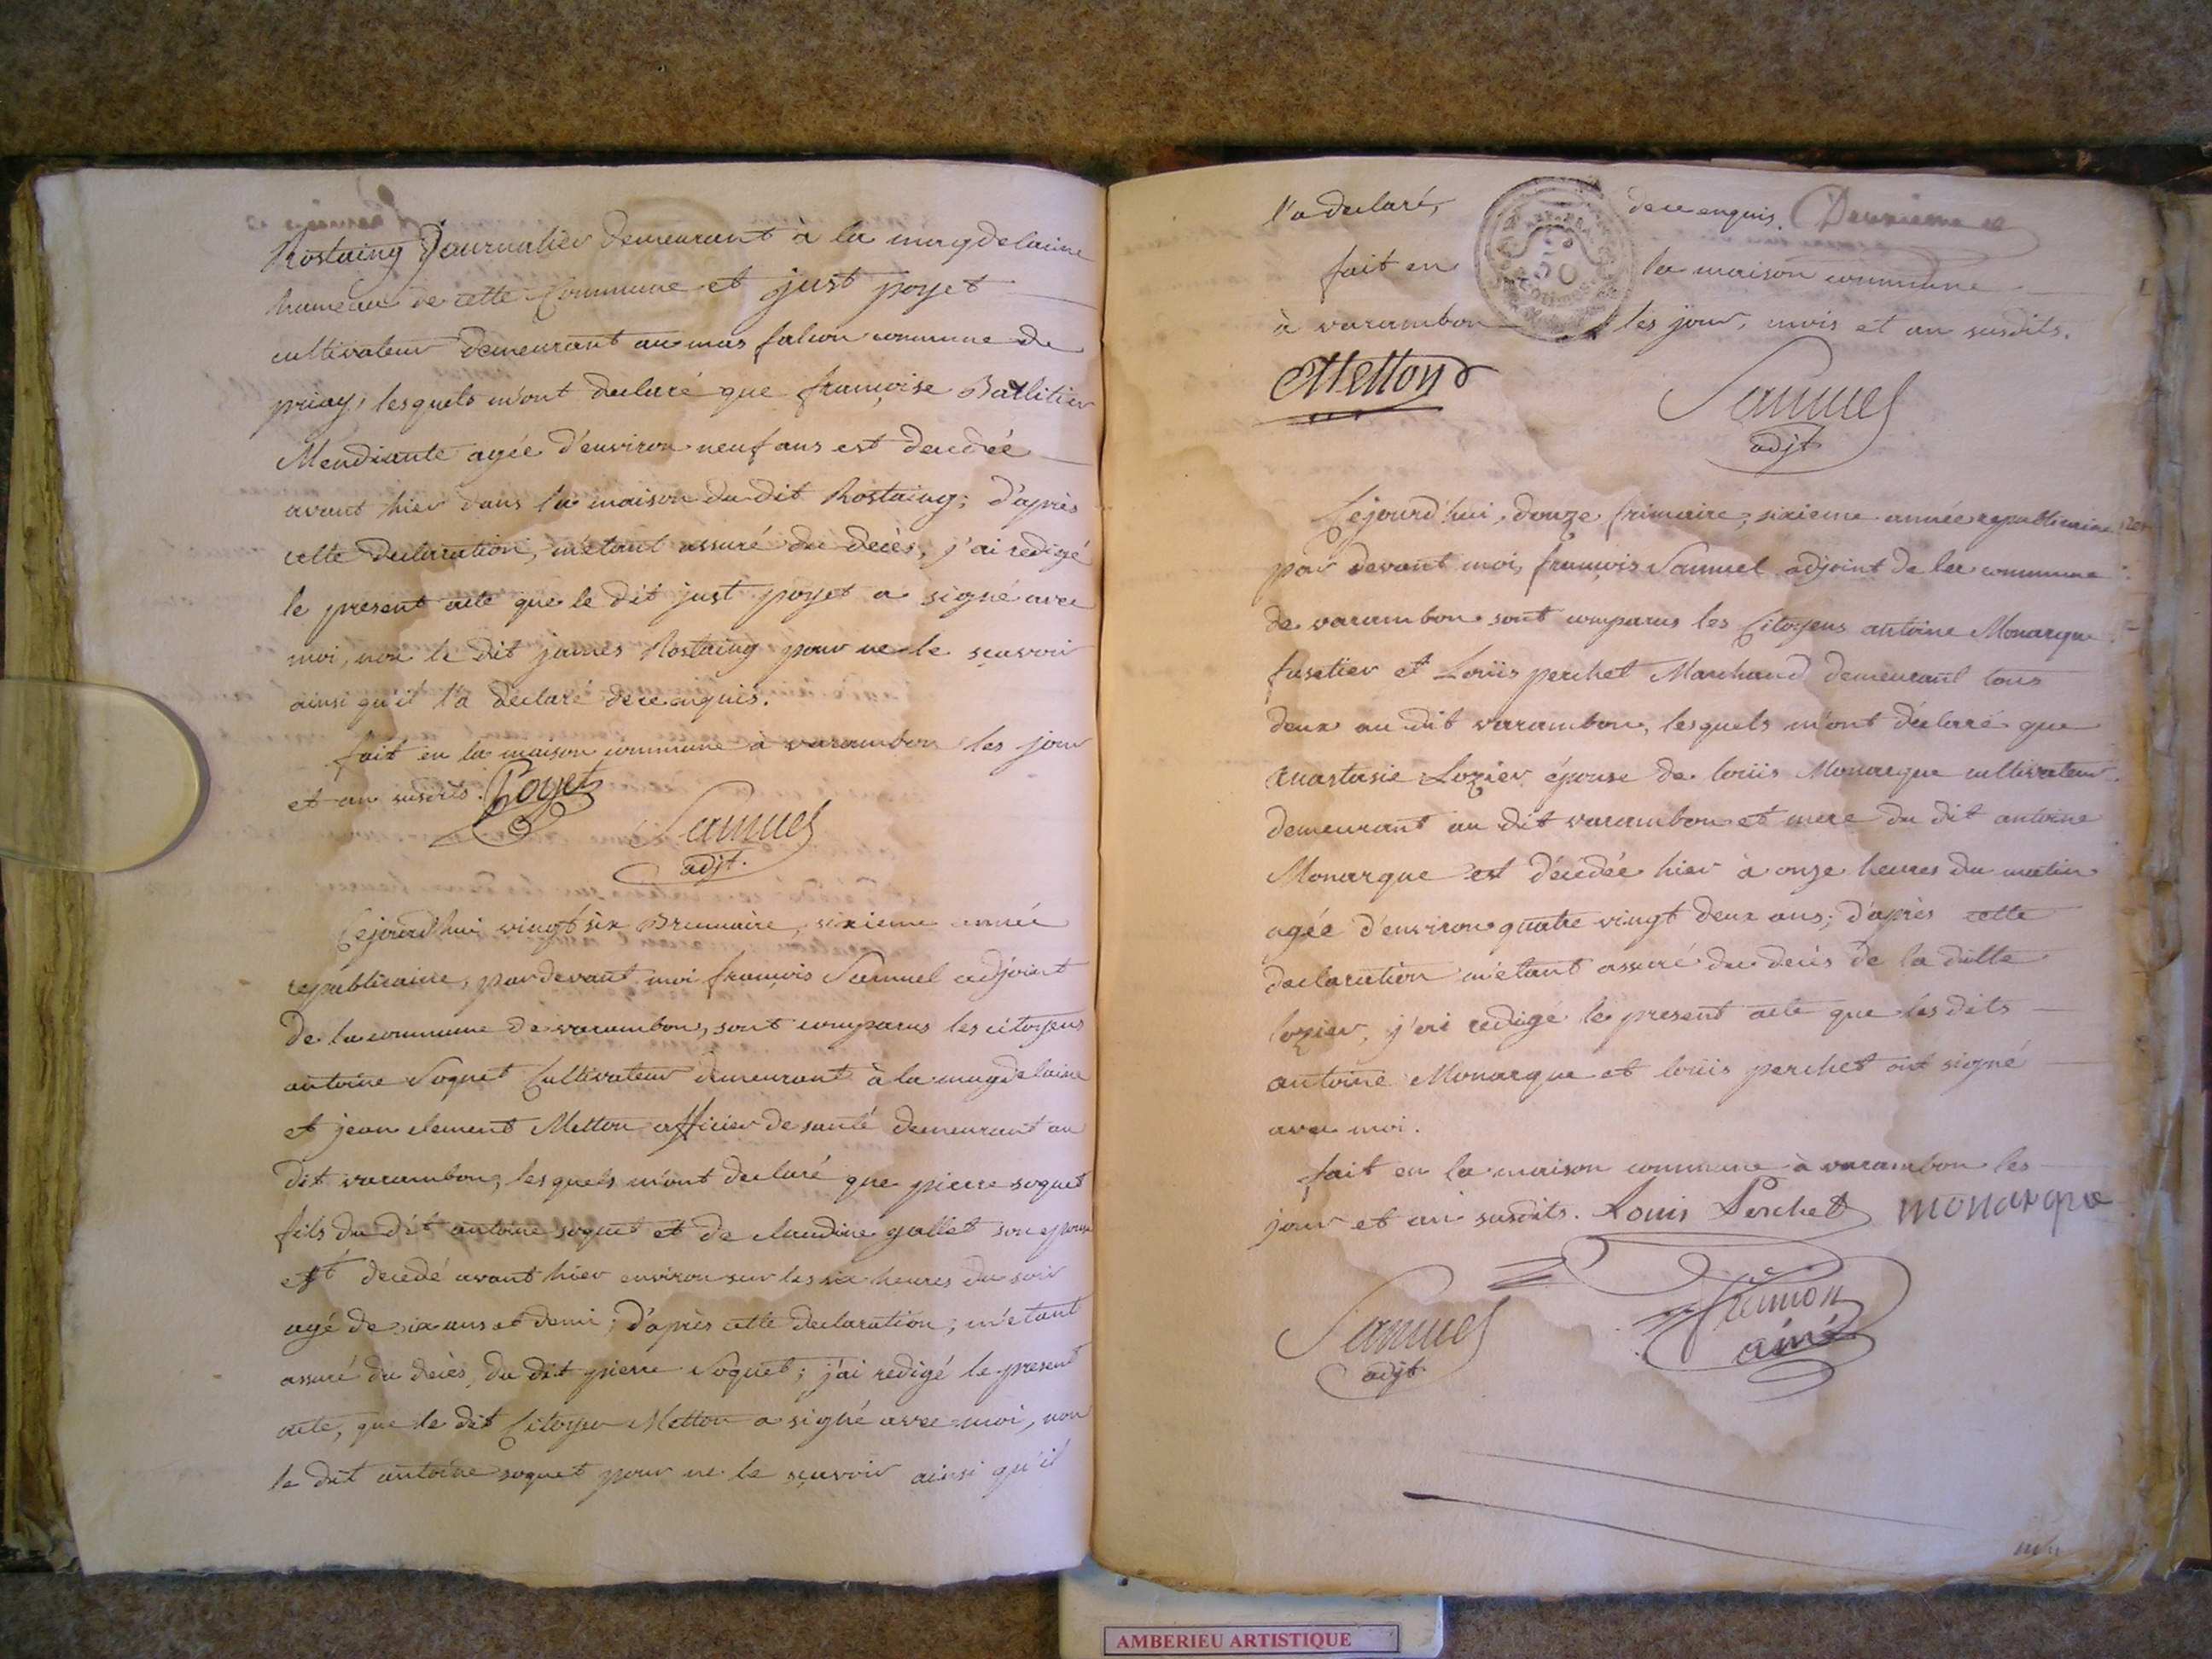 Rostaing Journalier demeurant à la magdelaine
hameau de cette Commune et just poyet
cultivateur demeurant au mas falcon commune de
priay, lesquels m'ont declaré que françoise
Mendiante agée d'environ neuf ans est decedée
avant hier dans la maison du dit Rostaing; d'après
cette declaration, m'etant assuré du decès, j'ai redigé
le present acte que le dit just poyet a signé avec
moi, non le dit james Rostaing pour ne le sçavoir
ainsi qu'il l'a declaré de ce enquis.
fait en la maison commune à varambon les jour
et an susdits. Poyet
Samuel
adjt.
Cejourd'hui vingt six Brumaire, sixieme année
republicaine, pardevant moi françois Samuel adjoint
de la commune de varambon, sont comparus les citoyens
antoine Soquet Cultivateur demeurant à la magdelaine
et jean clement Metton officier de santé demeurant au
dit varambon, lesquels m'ont declaré que pierre soquet
fils du dit antoine soquet et de claudine gallet son epouse
est decedé avant hier environ sur les six heures du soir
agé de six ans et demi; d'après cette declaration, m'etant
assuré du decès, du dit pierre Soquet; j'ai redigé le present
acte, que le dit Citoyen Metton a signé avec moi, non
le dit antoine soquet pour ne le sçavoir ainsi qu'il
l'a declaré, de ce enquis. Deuxieme
fait en la maison commune
à varambon les jour, mois et an susdits.
Metton
Samuel
adjt
50
Cejourd'hui, douze frimaire, sixieme année republicaine
par devant moi, françois Samuel adjoint de la commune
de varambon sont comparus les Citoyens antoine Monarque
fusetier et Loüis perchet Marchand demeurant tous
deux au dit varambon, lesquels m'ont déclaré que
anastasie Lozier épouse de loüis Monarque cultivateur
demeurant au dit varambon et mere du dit antoine
Monarque est décédée hier à onze heures du matin
agée d'environ quatre vingt deux ans; d'après cette
declaration m'etant assuré du decès de la ditte
lozier, j'ai redigé le present acte que les dits
antoine Monarque et loüis perchet ont signé
avec moi.
fait en la maison commune à varambon les
jour et an susdits. Louis Perchet monarque
Samuel
adjt
ainé
AMBERIEU ARTISTIQUE